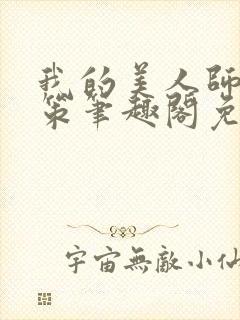 我的美人師
策筆趣閣免
宇宙無敵小仙